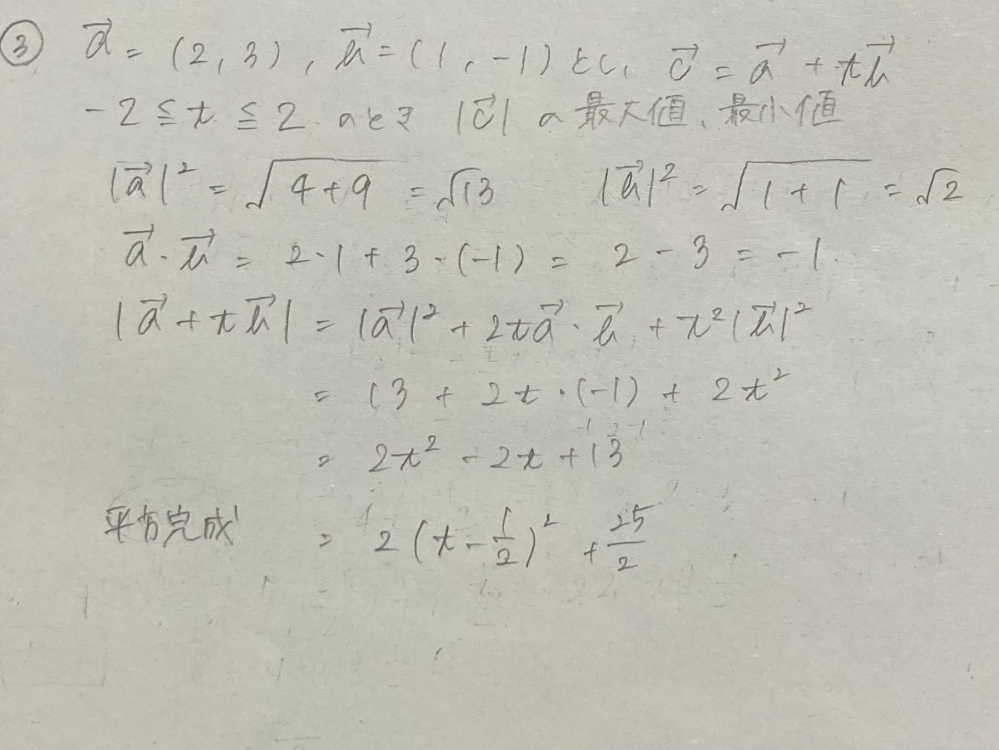 ③ a⃗ = (2, 3), b⃗ = (1, -1) とし、 c⃗ = a⃗ + tb⃗
-2 ≦ t ≦ 2 のとき |c⃗| の 最大値、最小値
|a⃗|² = √(4+9) = √13 |b⃗|² = √(1+1) = √2
a⃗・b⃗ = 2・1 + 3・(-1) = 2 - 3 = -1.
|a⃗ + tb⃗| = |a⃗|² + 2ta⃗・b⃗ + t²|b⃗|²
= 13 + 2t・(-1) + 2t²
= 2t² - 2t + 13
平方完成 = 2(t - 1/2)² + 25/2